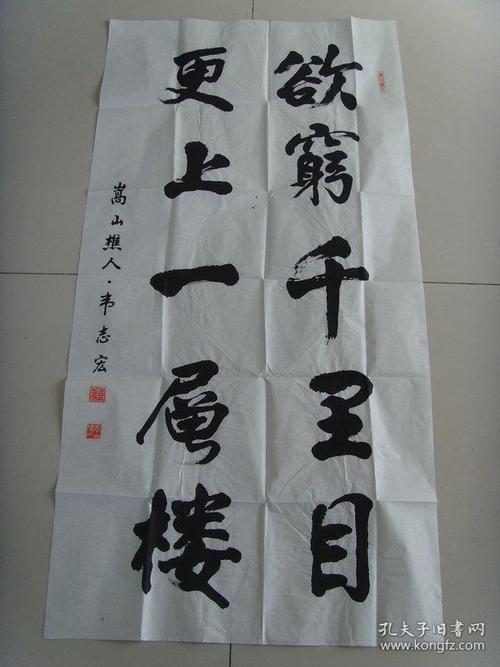 欲窮千里目
更上一層楼
嵩山樵人·韦志宏
孔夫子旧书网
www.kongfz.com